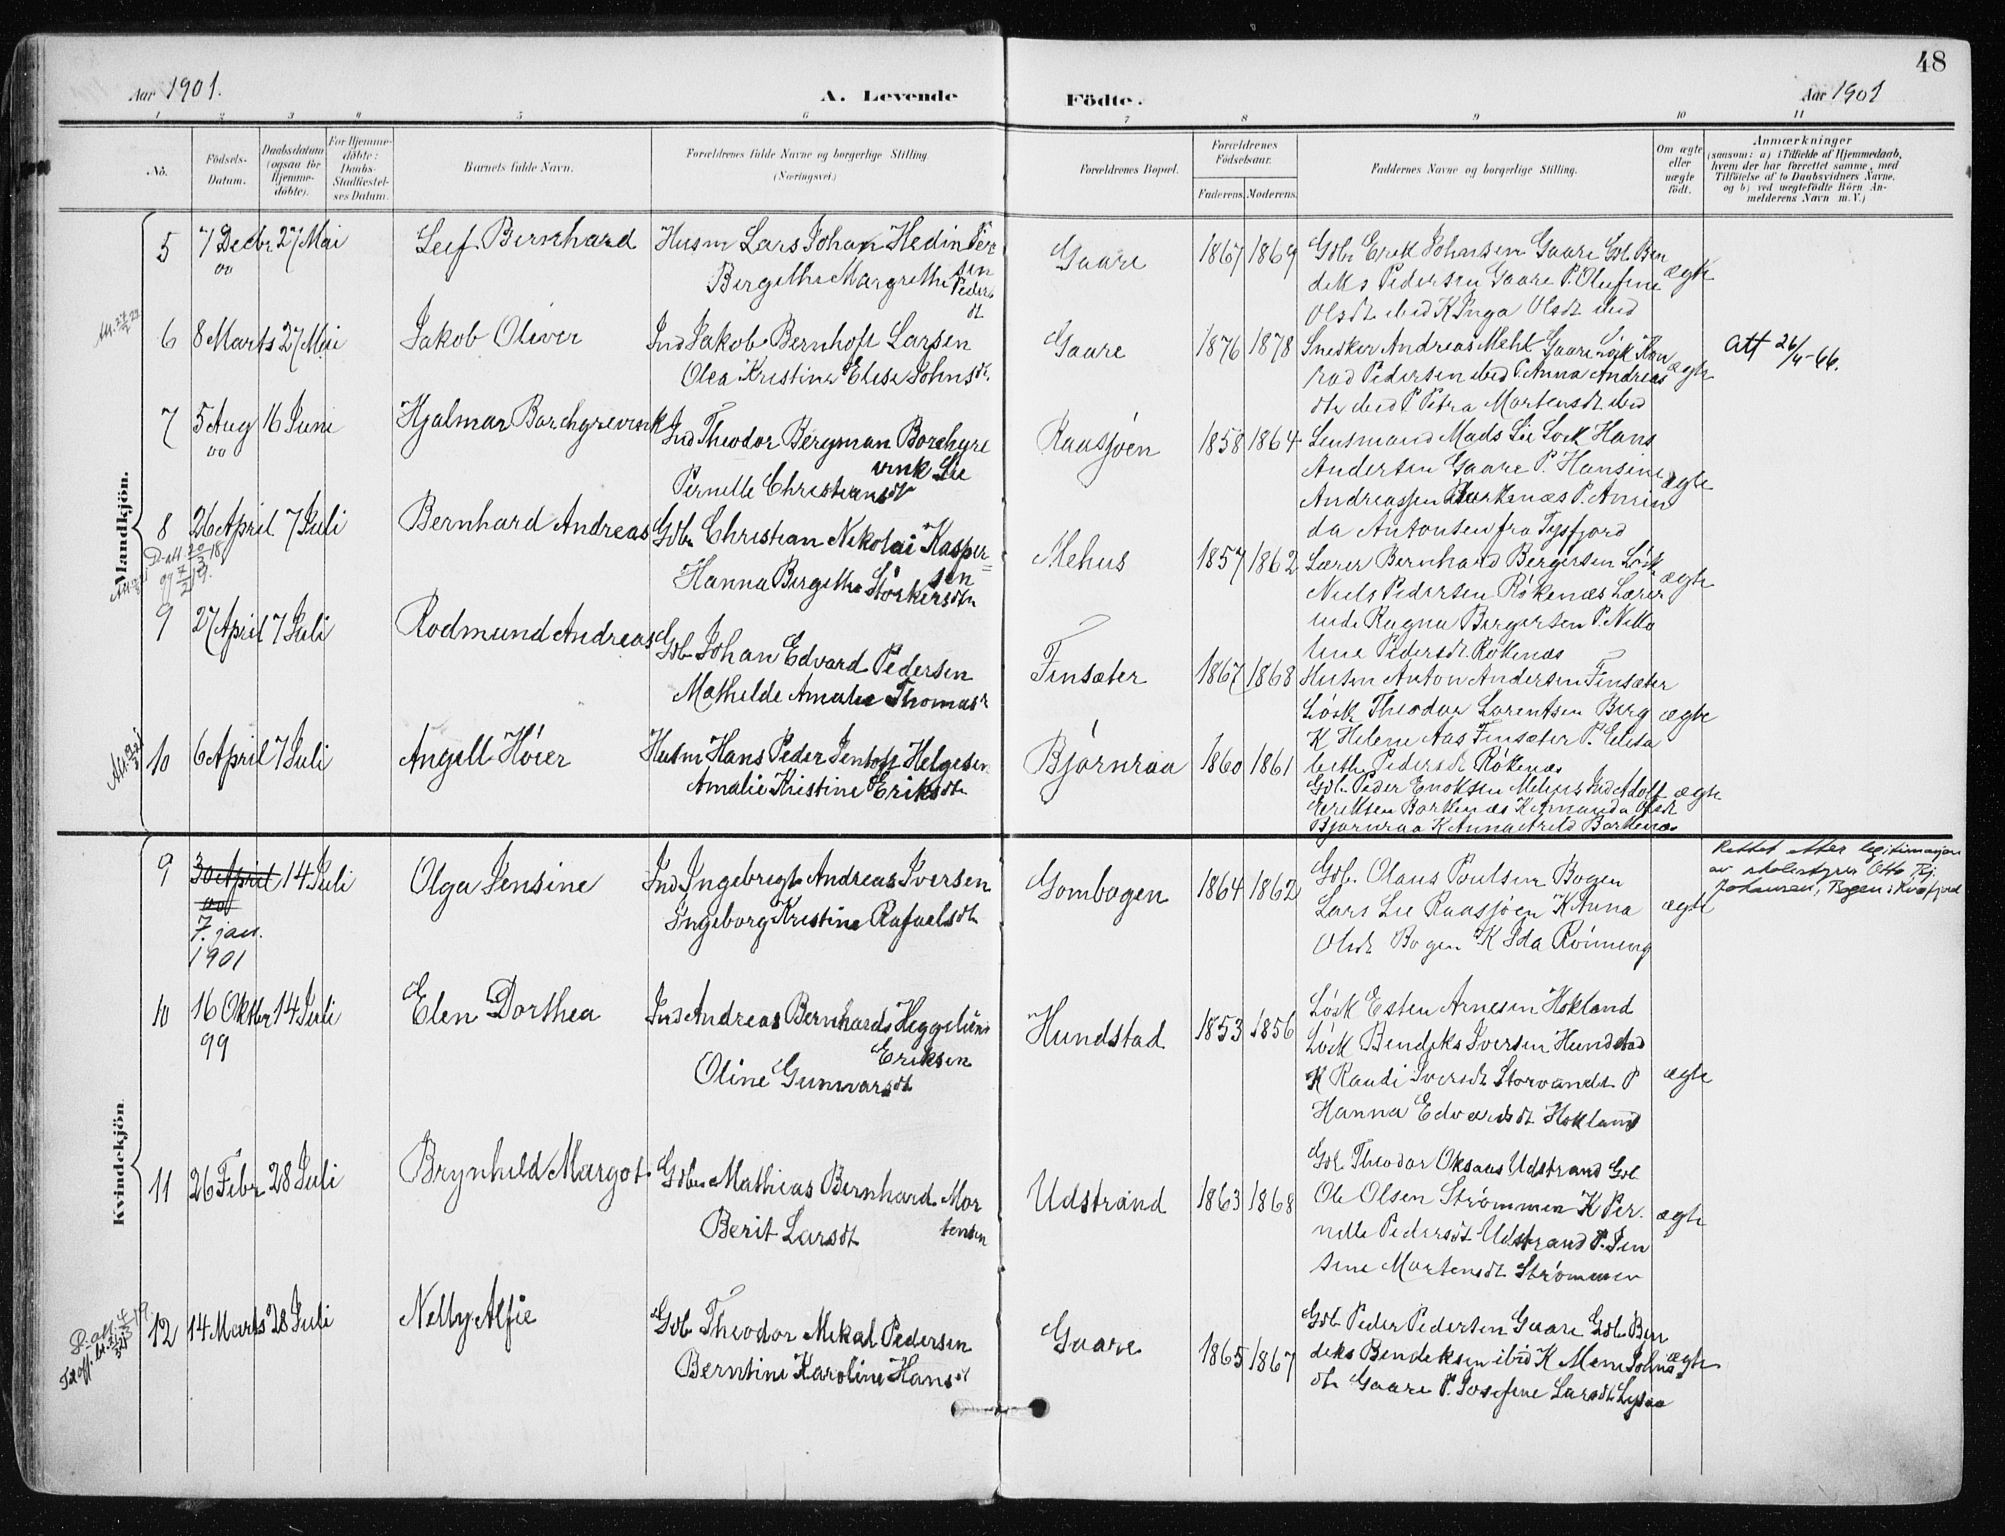 48
Aar 1901.
A. Levende Födte.
Aar 1901
1 2 3 4 5 6 7 8 9 10 11
No.
Födsels-
Datum.
Daabsdatum
(ogsaa for
Hjemme-
döbte).
For Hjemme-
döbte:
Daabs-
Stadfæstel-
ses Datum.
Barnets fulde Navn.
Forældrenes fulde Navne og borgerlige Stilling
(Næringsvei.)
Forældrenes Bopæl.
Forældrenes
Födselsaar.
Faderens. Moderens.
Faddernes Navne og borgerlige Stilling.
Om ægte
eller
uægte
födt.
Anmærkninger
(saasom: a) i Tilfælde af Hjemmedaab,
hvem der har forrettet samme, med
Tilföielse af to Daabsvidners Navne.
og b) ved uægtefödte Börn An-
melderens Navn m. V.)
Mandkjön.
5 7 Decbr 27 Mai Leif Bernhard Husm Lars Johan Hedin Peder
00
sen
Bergithe Margrethe Peders
dt
Gaare 1867 1869 Gdbr Erik Johnsen Gaare Gdb Ben
deks Pedersen Gaare P. Olufine
Olsdt ibid K Inga Olsdt ibid
ægte
6 8 Marts 27 Mai Jakob Oliver Ind Jakob Bernhoft Larsen
Olea Kristine Elise Johnsdt.
Gaare 1876 1878 Snesker Andreas Mehl Gaare Løsk Kon
rad Pedersen ibid P. Anna Andreas
dtr ibid P Petra Mortensdt ibid
ægte
att 26/4-66.
7 5 Aug 16 Juni Hjalmar Borchgrevink Ind Theodor Bergman Borchgre
00
vink Lie
Pernelle Christiansdt
Raasjøen 1858 1864 Lensmand Mads Lie Løsk Hans
Andersen Gaare P. Hansine
Andreassen Barkenæs P. Anrin
da Antonsen fra Tysfjord
ægte
8 26 April 7 Juli Bernhard Andreas Gdbr Christian Nikolai Kasper=
sen
Hanna Bergitha Størkersdtr
Mehus 1857 1862 Lærer Bernhard Bergersen Løsk
Niels Pedersen Røkenæs Lærer
inde Ragna Bergersen P. Nikо
line Pedersdt. Røkenæs
ægte
9 27 April 7 Juli Rodmund Andreas Gdb Johan Edvard Pedersen
Mathilde Amalie Thomasdt
Finsæter 1867 1868 Husm Anton Andersen Finsæter
Løsk Theodor Lorentsen Berg
K Helene Aas Finsæter P. Elisa
beth Pedersdt Røkenæs
ægte
10 6 April 7 Juli Angell Høier Husm Hans Peder Jentoft Helgesen
Amalie Kristine Eriksdt
Bjørnraa 1860 1861 Gdb. Peder Enoksen Mehus Ind Adolf
Eeriksen Barkenæs K Amanda Olsdt
Bjørnraa K Anna Arild Barkenæs
ægte
Kvindekjön
9 30 April 14 Juli Olga Jensine Ind Ingebrigt Andreas Iversen
00
7. jan.
1901
Ingeborg Kristine Rafaelsdt
Gombogen 1864 1862 Gdb. Olaus Poulsen Bogen
Lars Lie Raasjøen K Anna
Olsdt Bogen K Ida Rønning
ægte
Rettet etter legitimasjon
av skolestyrer Otto Bj.
Johansen, Bogen i Kvæfjord
10 16 Oktbr 14 Juli Elen Dorthea Ind Andreas Bernhards Heggelund
99
Eriksen
Oline Gunnarsdt
Hundstad 1853 1856 Løsk Esten Arnesen Hokland
Løsk Bendiks Iversen Hundstad
K Randi Iversdt Storvandt P
Hanna Edvardsdt Hokland
ægte
11 26 Febr 28 Juli Brynhild Margot Gdbr Mathias Bernhard Mor
tensen
Berit Larsdt
Udstrand 1863 1868 Gdb. Theodor Oksaas Udstrand Gdb
Ole Olsen Strømmen K Per.
nelle Pedersdt Udstrand P. Jen
sine Mortensdt Strømmen
ægte
12 14 Marts 28 Juli Nelly Alfie Gdb Theodor Mikal Pedersen
Berntine Karoline Hansdt
Gaare 1865 1867 Gdb Peder Pedersen Gaare Gdb. Ben
deks Bendeksen ibid K Mene Johns
dtr Gaare P. Josefine Larsdt Lysaa
ægte